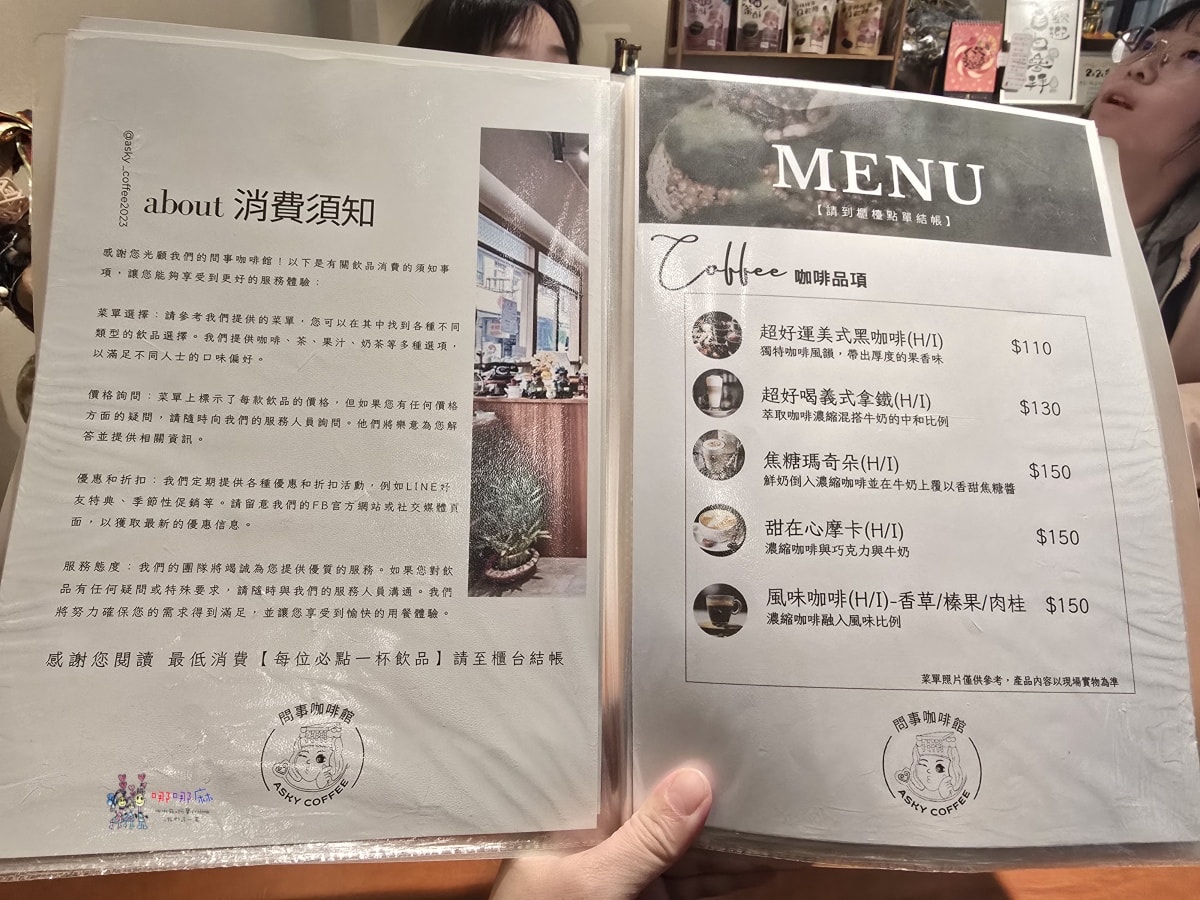 @asky_coffee2023
about 消費須知
感謝您光顧我們的問事咖啡館！以下是有關飲品消費的須知事
項，讓您能夠享受到更好的服務體驗：
菜單選擇：請參考我們提供的菜單，您可以在其中找到各種不同
類型的飲品選擇。我們提供咖啡、茶、果汁、奶茶等多種選項，
以滿足不同人士的口味偏好。
價格詢問：菜單上標示了每款飲品的價格，但如果您有任何價格
方面的疑問，請隨時向我們的服務人員詢問。他們將樂意為您解
答並提供相關資訊。
優惠和折扣：我們定期提供各種優惠和折扣活動，例如LINE好
友特典、季節性促銷等。請留意我們的FB官方網站或社交媒體頁
面，以獲取最新的優惠信息。
服務態度：我們的團隊將竭誠為您提供優質的服務。如果您對飲
品有任何疑問或特殊要求，請隨時與我們的服務人員溝通。我們
將努力確保您的需求得到滿足，並讓您享受到愉快的用餐體驗。
感謝您閱讀 最低消費【每位必點一杯飲品】請至櫃台結帳
問事咖啡館
ASKY COFFEE
MENU
【請到櫃檯點單結帳】
Coffee 咖啡品項
超好運美式黑咖啡(H/I) $110
獨特咖啡風韻，帶出厚度的果香味
超好喝義式拿鐵(H/I) $130
萃取咖啡濃縮混搭牛奶的中和比例
焦糖瑪奇朵(H/I) $150
鮮奶倒入濃縮咖啡並在牛奶上覆以香甜焦糖醬
甜在心摩卡(H/I) $150
濃縮咖啡與巧克力與牛奶
風味咖啡(H/I)-香草/榛果/肉桂 $150
濃縮咖啡融入風味比例
菜單照片僅供參考，產品內容以現場實物為準
問事咖啡館
ASKY COFFEE